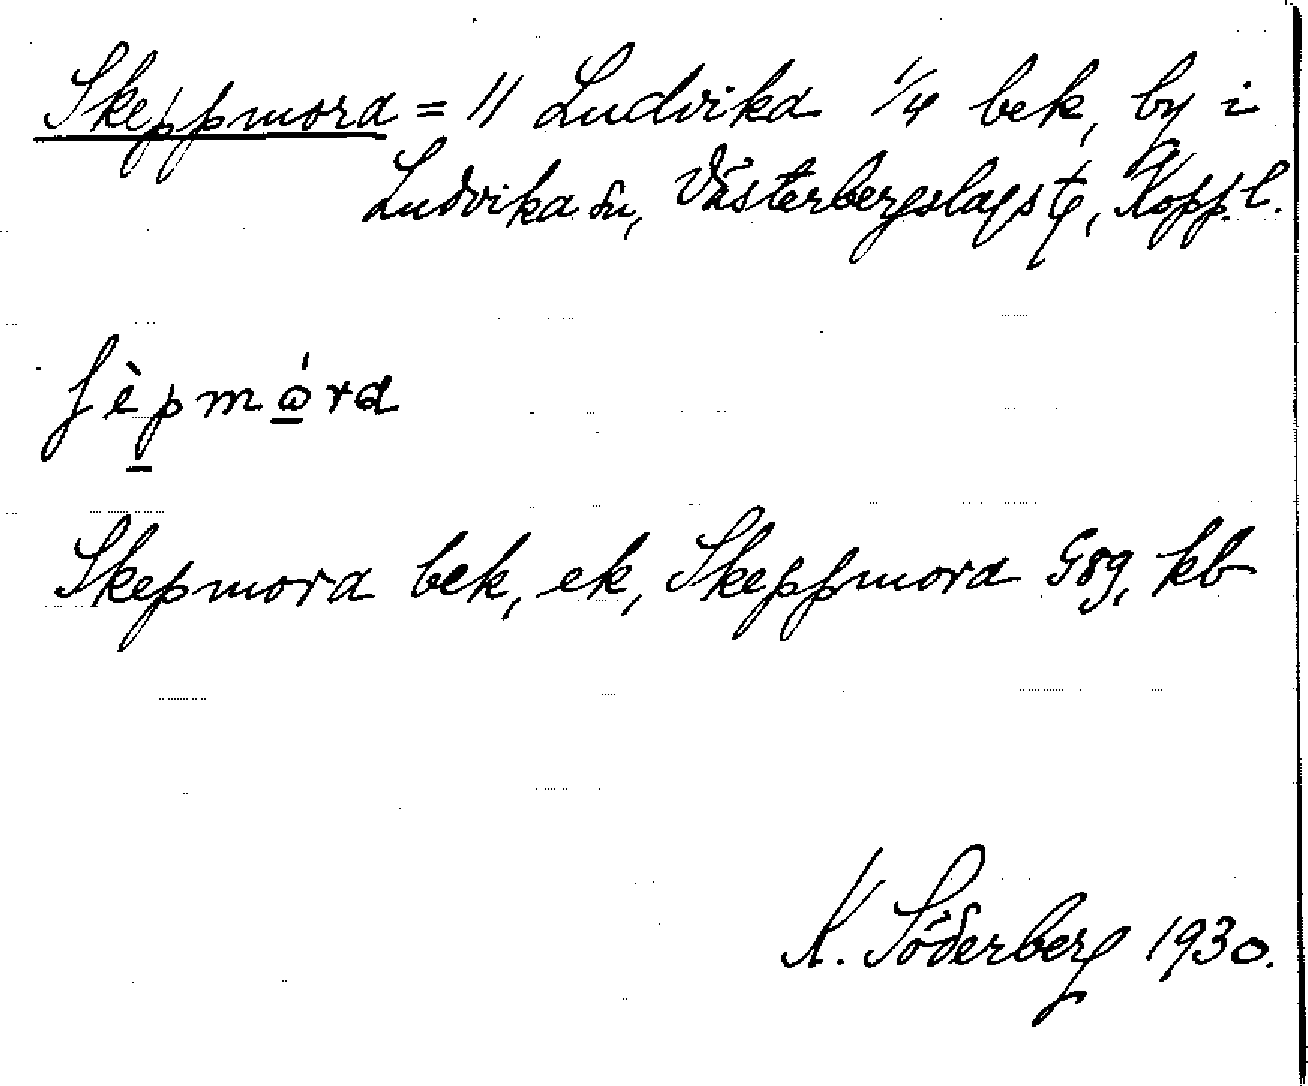 Skeppmora = 11 Ludvika 1/4 bek, by i
Ludvika sn, Västerbergslags tg, Kopp. l.
ʃèpmɷ́ra
Skepmora bek, ek, Skeppmora Gsg, kb
K. Söderberg 1930.